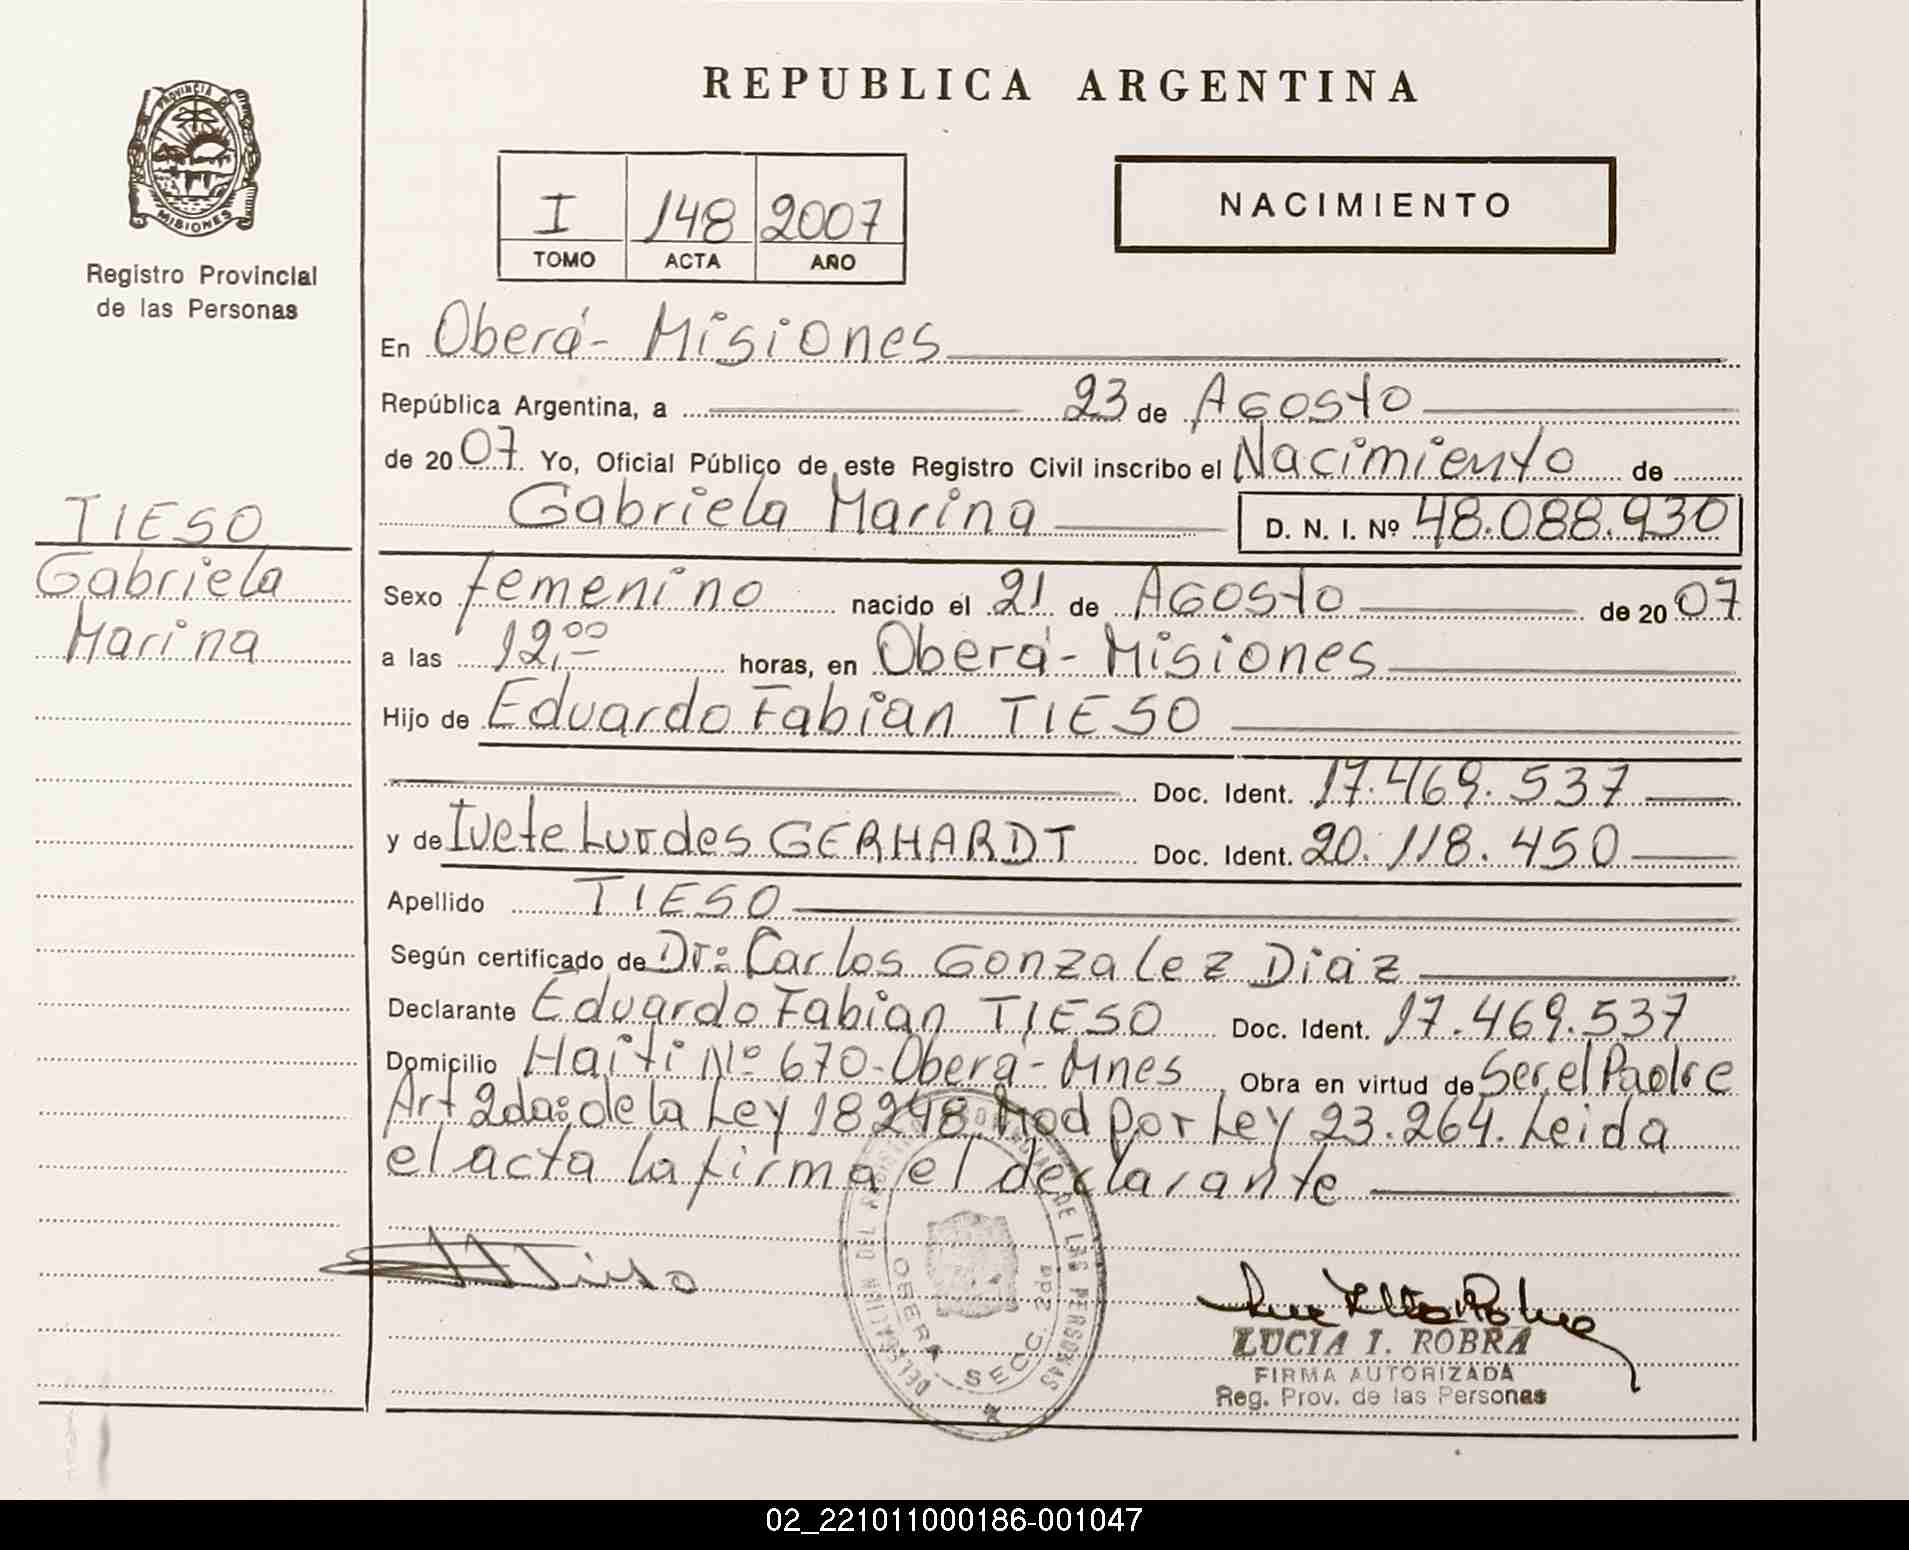 REPUBLICA ARGENTINA
PROVINCIA DE
MISIONES
Registro Provincial
de las Personas
I 148 2007
TOMO ACTA AÑO
NACIMIENTO
En Oberá - Misiones
República Argentina, a 23 de Agosto
de 2007. Yo, Oficial Público de este Registro Civil inscribo el Nacimiento de
Gabriela Marina D. N. I. Nº 48.088.930
TIESO
Gabriela
Marina
Sexo femenino nacido el 21 de Agosto de 2007
a las 12,00 horas, en Oberá - Misiones
Hijo de Eduardo Fabian TIESO
Doc. Ident. 17.469.537
y de Ivete Lurdes GERHARDT Doc. Ident. 20.118.450
Apellido TIESO
Según certificado de Dr: Carlos Gonzalez Diaz
Declarante Eduardo Fabian TIESO Doc. Ident. 17.469.537
Domicilio Haiti Nº 670-Oberá-Mnes Obra en virtud de Ser el Padre
Art 2da: de la Ley 18248 Mod por Ley 23.264. Leida
el acta la firma el declarante
Tieso
DELEGACION DEL REGISTRO DE LAS PERSONAS
OBERA SECC. 2da
LUCIA I. ROBRA
FIRMA AUTORIZADA
Reg. Prov. de las Personas
02_221011000186-001047